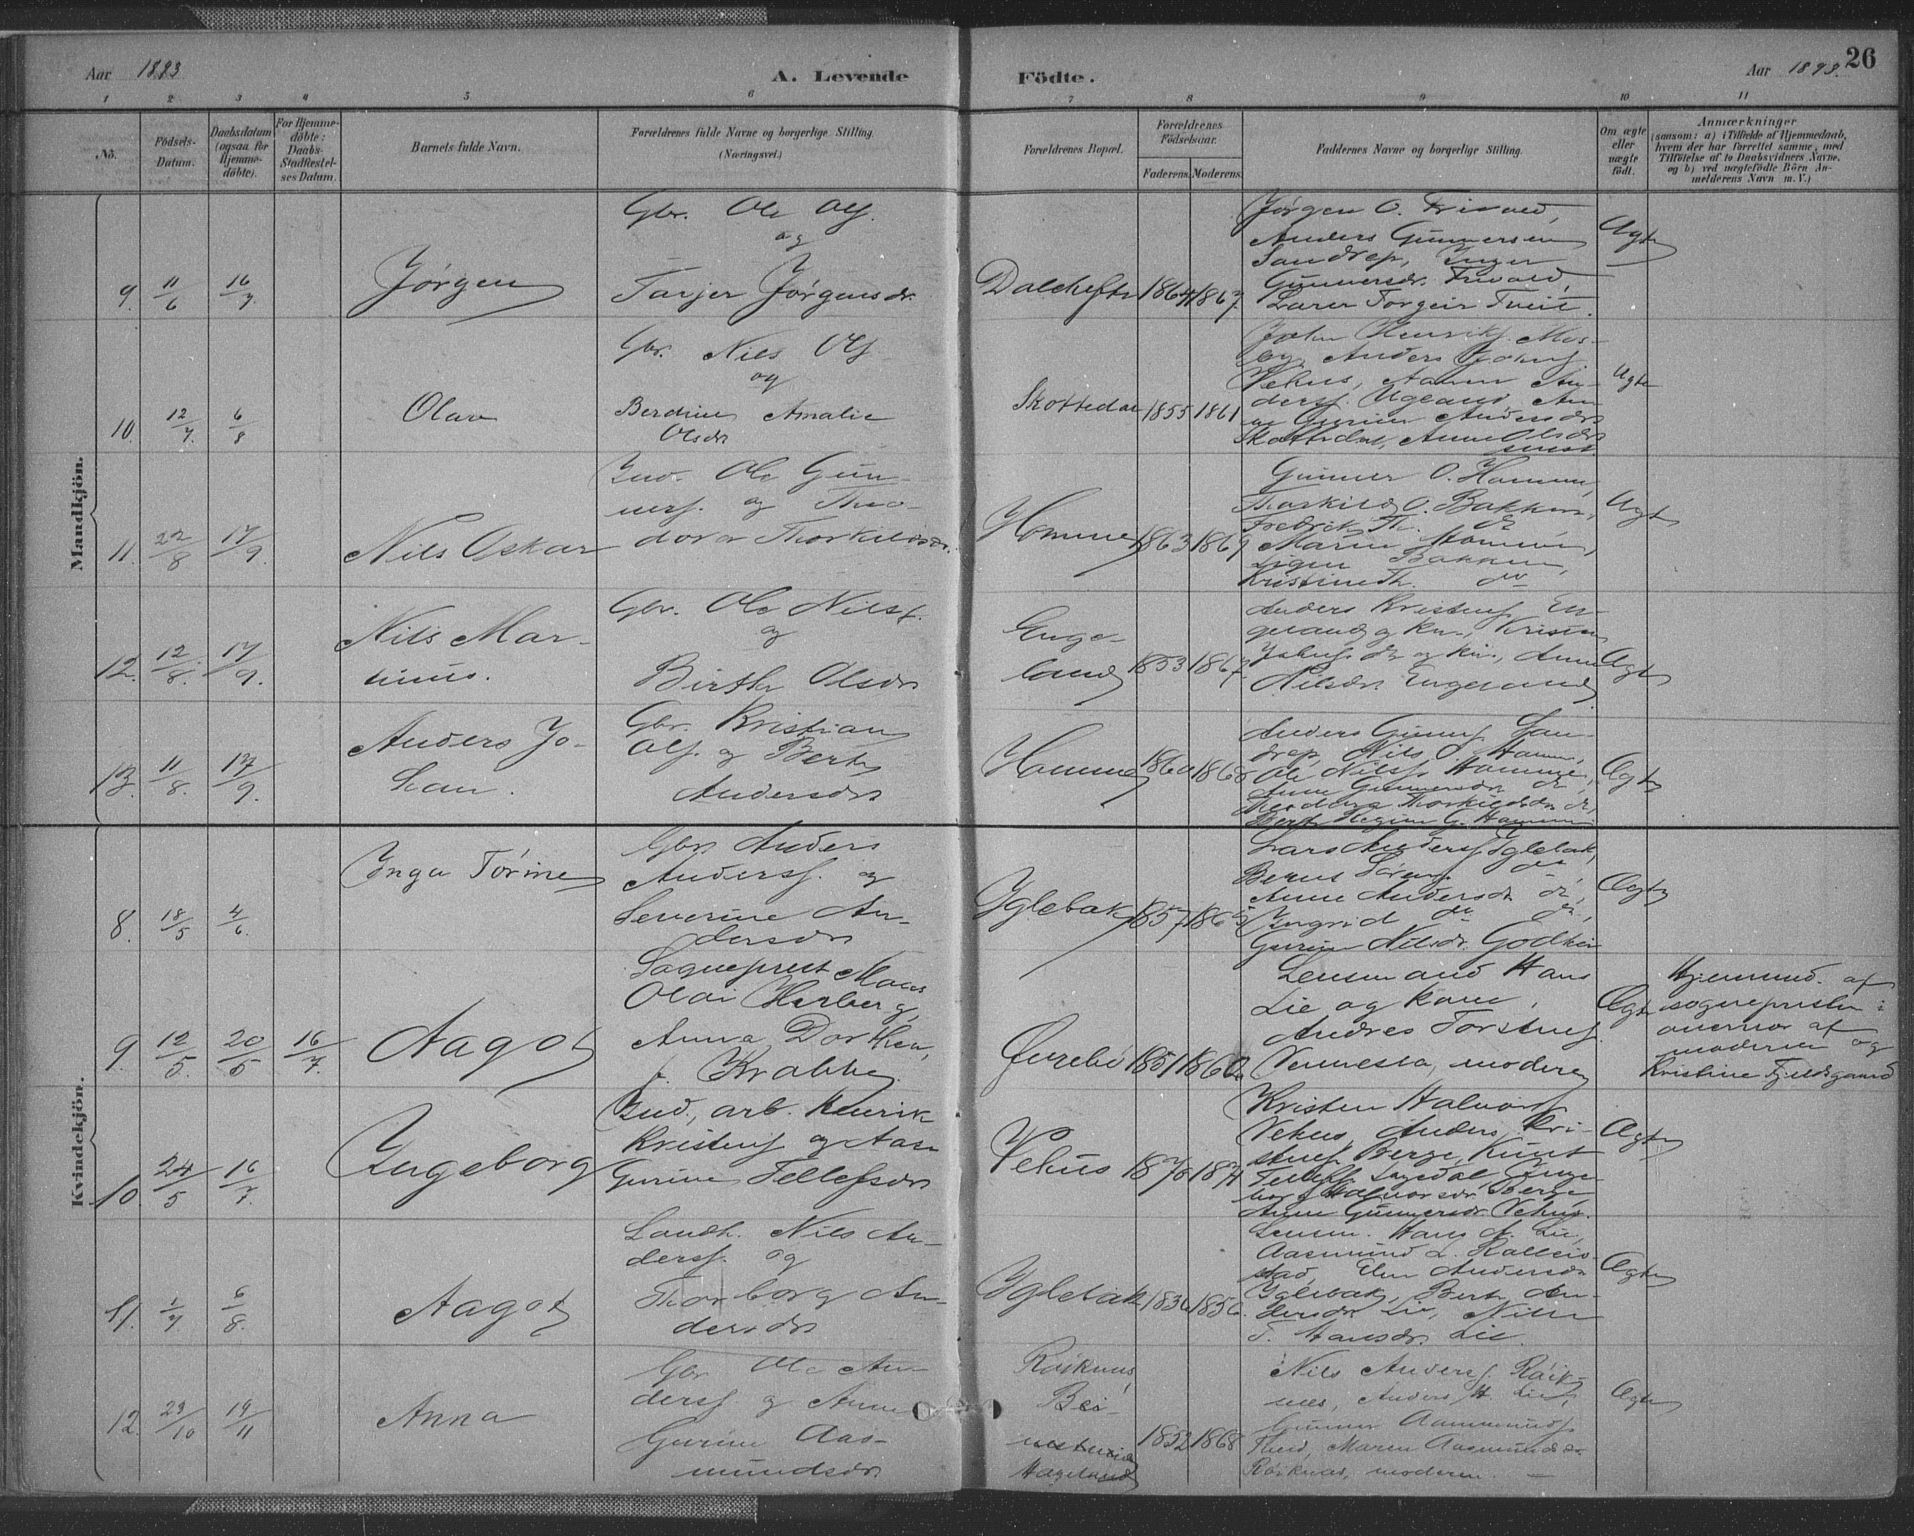 Aar 1893
A. Levende
Födte.
Aar 1893.
26
1 2 3 4 5 6 7 8 9 10 11
No.
Födsels-
Datum.
Daabsdatum
(ogsaa for
Hjemme-
döbte).
For Hjemme-
döbte:
Daabs-
Stadfæstel-
ses Datum.
Barnets fulde Navn.
Forældrenes fulde Navne og borgerlige Stilling.
(Næringsvei.)
Forældrenes Bopæl.
Forældrenes
Födselsaar.
Faderens. Moderens.
Faddernes Navne og borgerlige Stilling.
Om ægte
eller
uægte
födt.
Anmærkninger
(saasom: a) i Tilfælde af Hjemmedaab,
hvem der har forrettet samme, med
Tilföielse af to Daabsvidners Navne,
og b) ved uægtefödte Börn An-
melderens Navn m. V.)
Mandkjön.
9. 11/6 16/7 Jørgen
Gbr. Ole Olf.
og
Tarjer Jørgensdr.
1864 1867.
Jørgen O. Trivold,
Anders Gunnersen
Sandrep, Inger
Gunnersdr. Trivold,
Lærer Torgeir Tveit.
Ægte
10. 12/7 6/8 Olav
Gbr. Nils Olf.
og
Berdine Amalie
Olsdr
Skottedal 1855 1861
John Henriks. Mos-
by, Anders Johns.
Vehus, Aanen An-
ders. Ugland, An-
ne Gurine Andersdr
Skottedal, Anne Olsdr
Ægte
11. 22/8 17/9. Nils Oskar
Ind. Ole Gun-
ners. og Theo-
dora Thorkildsdr.
Homme 1863 1869
Gunner O. Homme,
Thorkild O. Bakken,
Fredrik Th. do
Maren Homme,
Bakken,
Kristine Th. do
Ægte
12. 12/8. 17/9. Nils Mar-
tinus.
Gbr. Ole Nilsf.
og
Birthe Olsdr
Enge-
land 1853 1867.
Anders Kristens. En-
geland og kn., Kristen
Jakobs. do og kn., Anne
Nilsdr. Engeland
Ægte
13. 11/8. 17/9. Anders Jo-
han.
Gbr. Kristian
Olf. og Berte
Andersdr
Homme 1860 1868
Anders Gunners. San-
drep, Nils O. Homme,
Ole Nilsf. Homme,
Anne Gunnersdr do,
Theodora Thorkildsdr do,
Berte Regine G. Homme
Ægte
Kvindekjön.
8. 18/5 4/6. Inga Tørine
Gbr. Anders
Andersf. og
Severine An-
dersdr
Iglebak 1857 1865
Lars Andersf. Iglebak,
Bernt Sørens. do,
Anne Andersdr do,
Ingrid do do,
Gurine Nilsdr. Godhei
Ægte
9. 12/5. 20/5 16/7. Aagot
Sogneprest Maas
Olai Herberg,
Anna Dorthea,
f. Krabbe.
Øvrebö 1851 1860
Lensmand Hans
Lie og kone,
Andres Torstens.
Vennesla, moderen
Ægte
Hjemmed. af
sognepresten i
nærvær af
moderen og
Kristine Fjeldsgaard
10. 24/5 16/7. Ingeborg
Ind., arb. Henrik
Kristens. og Aase
Gurine Tellefsdr
Vehus 1870 1874
Kristen Halvors.
Vehus, Anders Kri-
stens. Berge, Knut
Tellefs. Lagedal, Inge-
borg Halvorsdr Berge
Anne Gunnersdr Vehus.
Ægte
11. 1/7 6/8. Aagot
Landh. Nils An-
dersf. og
Thorborg An-
dersdr
Iglebak 1856.
Lensm. Hans A. Lie,
Aasmund L. Ralleis-
stad, Elen Andersdr
Iglebak, Berte An-
dersdr Lie,
T. Hansdr. Lie.
Ægte
12. 29/10 19/11 Anna
Gbr. Ole An-
dersf. og Anne
Gurine Aas-
mundsdr
Röiknæs,
Hægeland 1852 1868
Nils Andersf. Röik-
næs, Anders H. Lie,
Gunner Aasmunds.
Maren Aasmundsdr
Röiknæs, moderen. —
Ægte